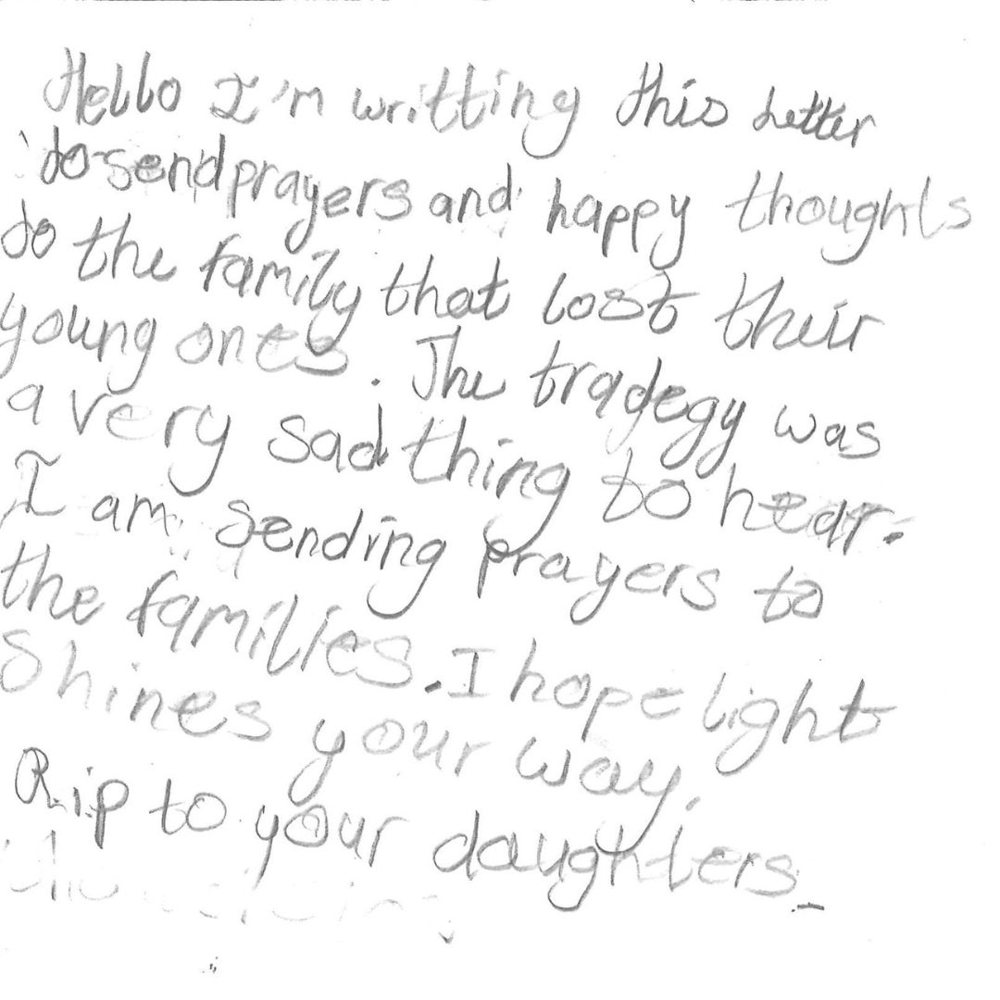 Hello I'm writting this Letter
to send prayers and happy thoughts
to the family that lost their
young ones. The tradegy was
a very sad thing to hear.
I am sending prayers to
the families. I hope light
Shines your way.
R.ip to your daughters.